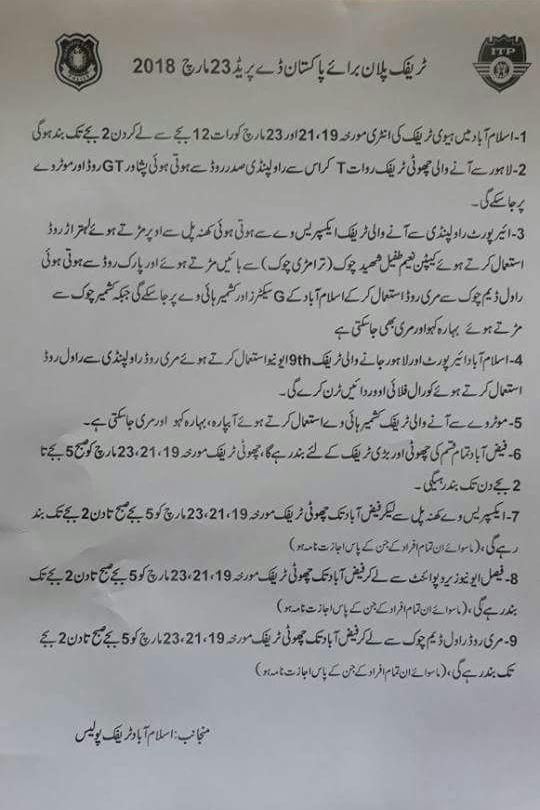 ITP
ٹریفک پلان برائے پاکستان ڈے پریڈ 23 مارچ 2018
1- اسلام آباد میں ہیوی ٹریفک کی انٹری مورخہ 21،19 اور 23 مارچ کو رات 12 بجے سے لے کر دن 2 بجے تک بند ہوگی
2- لاہور سے آنے والی چھوٹی ٹریفک روات T کراس سے راولپنڈی صدر روڈ سے ہوتی ہوئی پشاور GT روڈ اور موٹر وے
پر جا سکے گی۔
3- ائیر پورٹ راولپنڈی سے آنے والی ٹریفک ایکسپریس وے سے ہوتی ہوئی کھنہ پل سے اوپر مڑتے ہوئے لہتراڑ روڈ
استعمال کرتے ہوئے کیپٹن نعیم طفیل شھید چوک (ترامڑی چوک) سے بائیں مڑتے ہوئے اور پارک روڈ سے ہوتی ہوئی
راول ڈیم چوک سے مری روڈ استعمال کر کے اسلام آباد کے G سیکٹرز اور کشمیر ہائی وے پر جا سکے گی جبکہ کشمیر چوک سے
مڑتے ہوئے بہارہ کہو اور مری بھی جا سکتی ہے
4- اسلام آباد ائیر پورٹ اور لاہور جانے والی ٹریفک 9th ایونیو استعمال کرتے ہوئے مری روڈ راولپنڈی سے راول روڈ
استعمال کرتے ہوئے کورال فلائی اوور دائیں ٹرن کرے گی۔
5- موٹر وے سے آنے والی ٹریفک کشمیر ہائی وے استعمال کرتے ہوئے آبپارہ، بہارہ کہو اور مری جا سکتی ہے۔
6- فیض آباد تمام قسم کی چھوٹی اور بڑی ٹریفک کے لئے بند رہے گا، چھوٹی ٹریفک مورخہ 23،21،19 مارچ کو صبح 5 بجے تا
2 بجے دن تک بند رہیگی۔
7- ایکسپریس وے کھنہ پل سے لیکر فیض آباد تک چھوٹی ٹریفک مورخہ 23،21،19 مارچ کو 5 بجے صبح تا دن 2 بجے تک بند
رہے گی، (ماسوائے ان تمام افراد کے جن کے پاس اجازت نامہ ہو)
8- فیصل ایونیو زیرو پوائنٹ سے لے کر فیض آباد تک چھوٹی ٹریفک مورخہ 23،21،19 مارچ کو 5 بجے صبح تا دن 2 بجے تک
بند رہے گی، (ماسوائے ان تمام افراد کے جن کے پاس اجازت نامہ ہو)
9- مری روڈ راول ڈیم چوک سے لے کر فیض آباد تک چھوٹی ٹریفک مورخہ 23،21،19 مارچ کو 5 بجے صبح تا دن 2 بجے
تک بند رہے گی، (ماسوائے ان تمام افراد کے جن کے پاس اجازت نامہ ہو)
منجانب: اسلام آباد ٹریفک پولیس